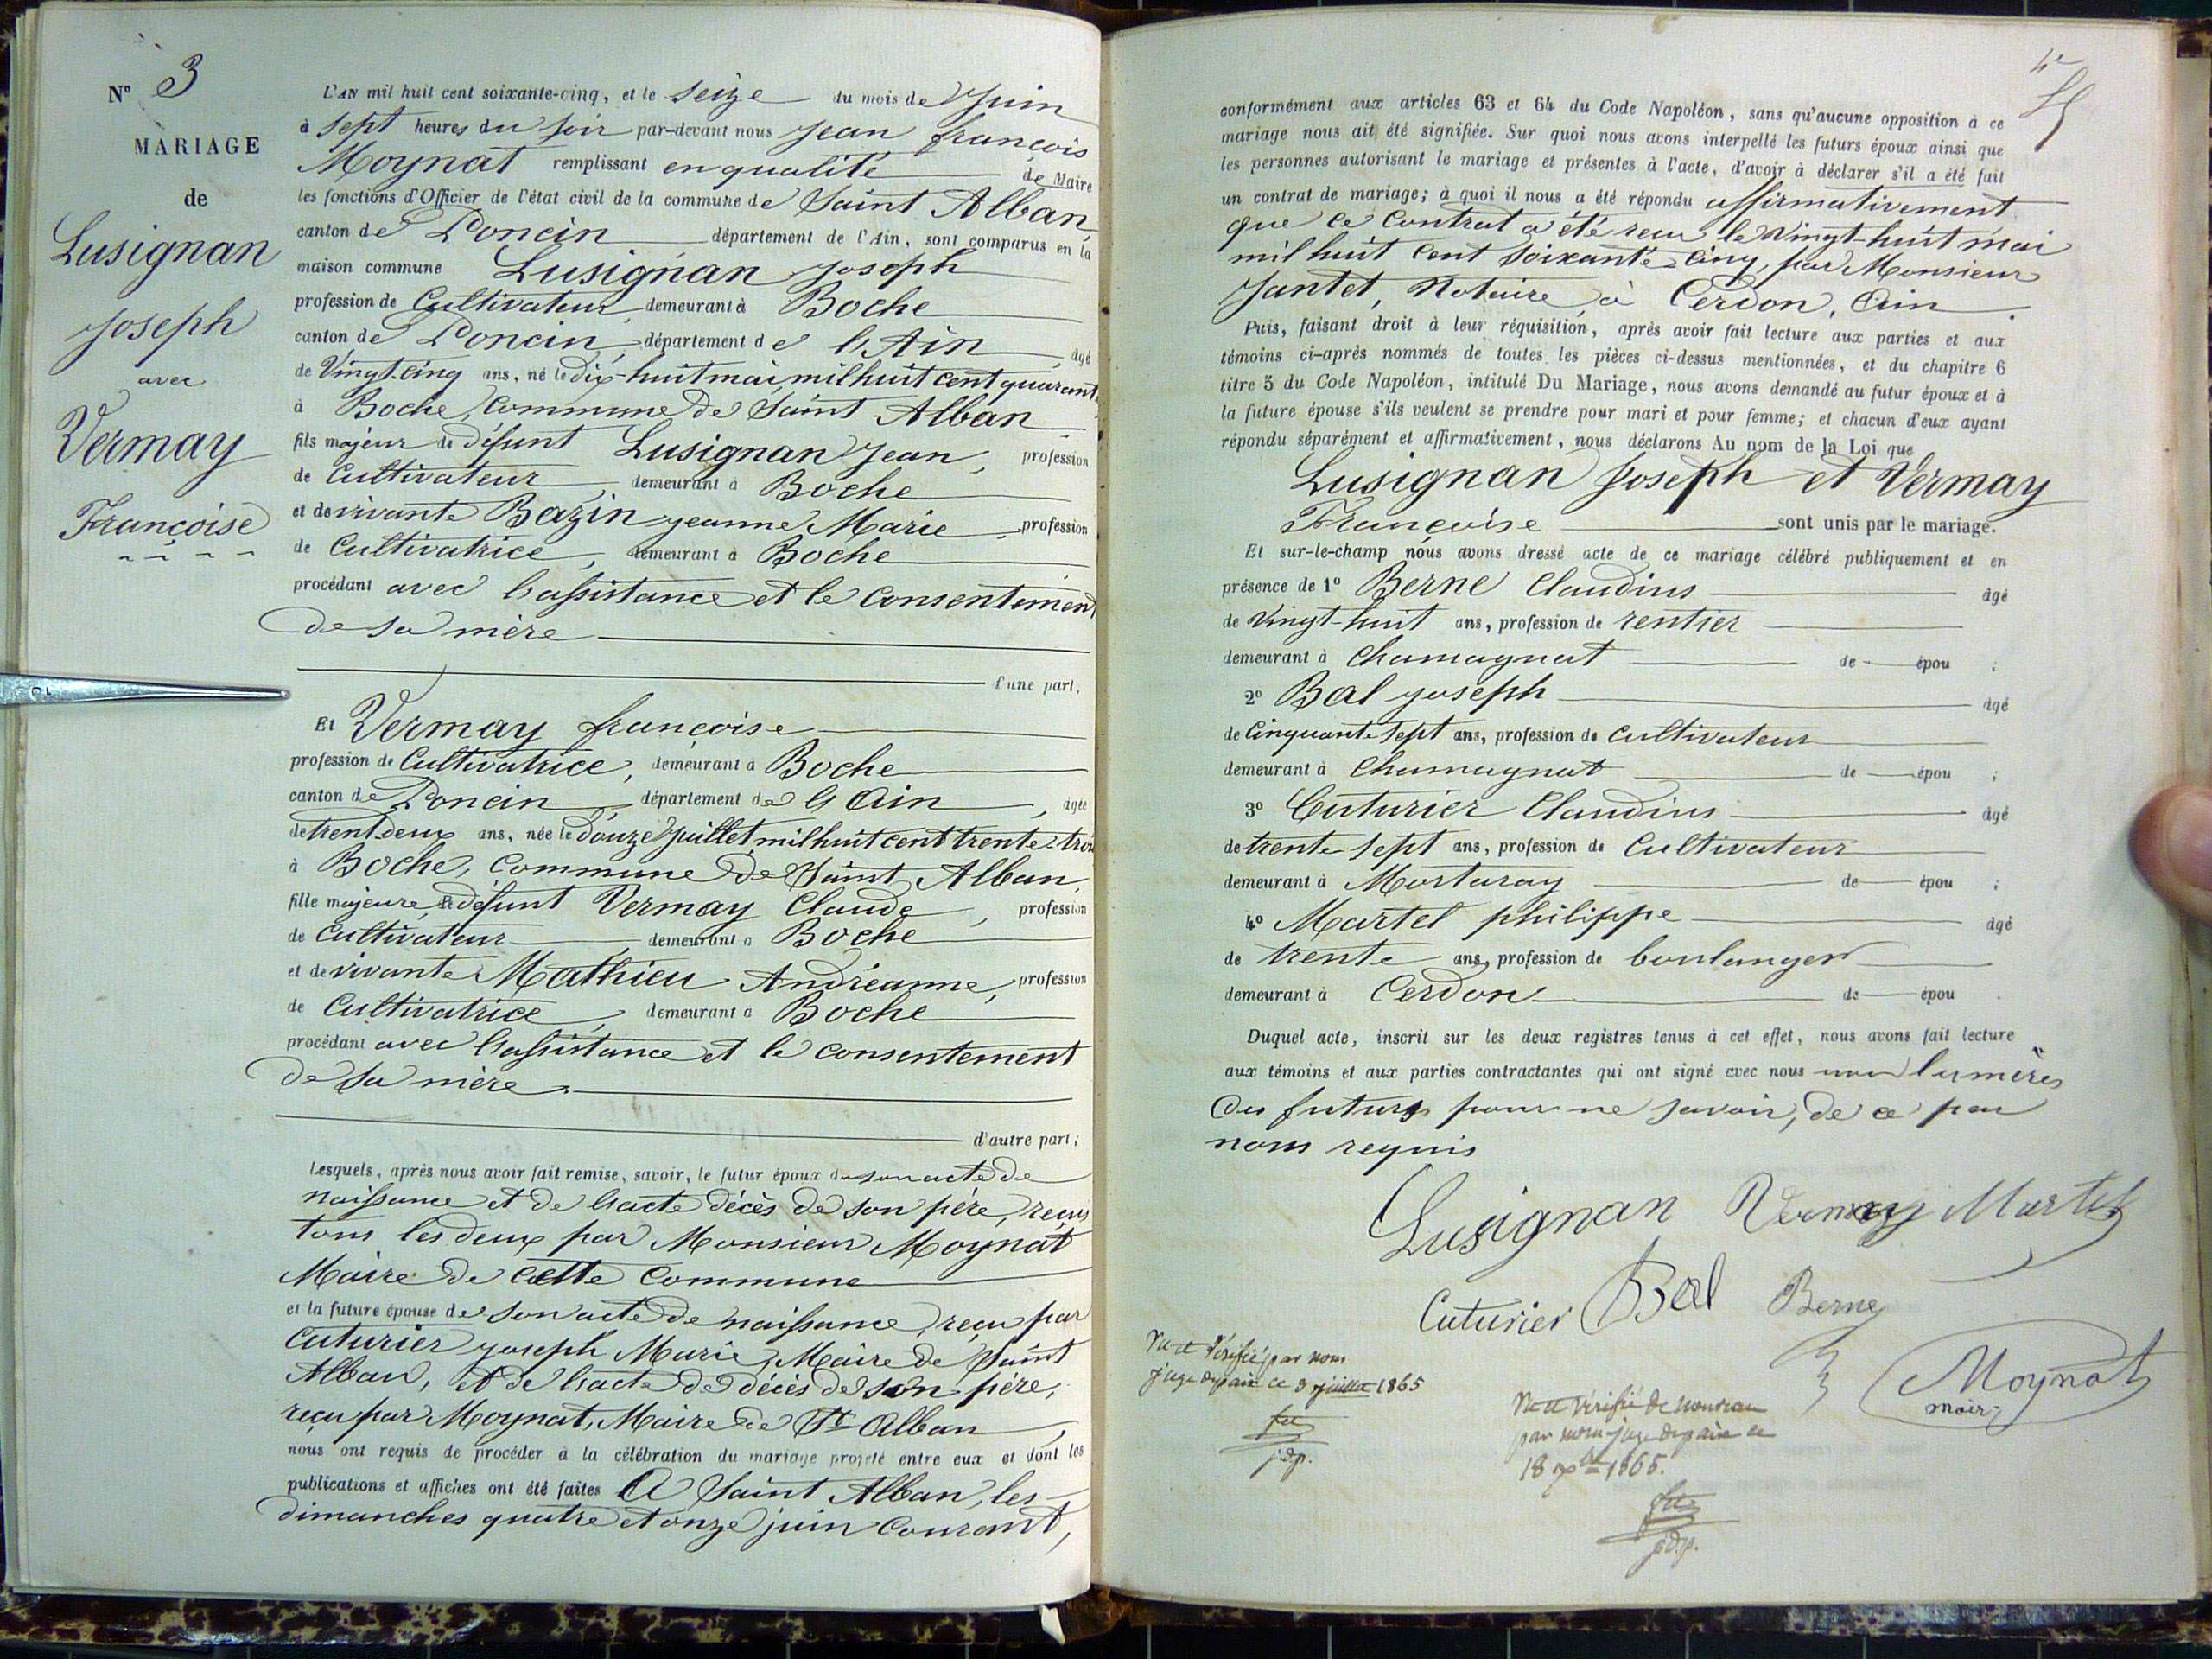 N° 3
MARIAGE
de
Lusignan
Joseph
avec
Vermay
Françoise
L'AN mil huit cent soixante-cinq, et le seize du mois de Juin
à sept heures du soir par-devant nous Jean françois
Moynat remplissant en qualité de Maire
les fonctions d'Officier de l'état civil de la commune de Saint Alban,
canton de Poncin département de l'Ain, sont comparus en la
maison commune Lusignan Joseph
profession de Cultivateur demeurant à Boche
canton de Poncin, département de l'Ain âgé
de Vingt-cinq ans, né le dix-huit mai mil huit cent quarante
à Boche, Commune de Saint Alban
fils majeur de défunt Lusignan Jean, profession
de Cultivateur, demeurant à Boche
et de vivante Bazin jeanne Marie, profession
de Cultivatrice, demeurant à Boche
procédant avec l'assistance et le consentement
de sa mère
d'une part,
Et Vermay françoise
profession de Cultivatrice, demeurant à Boche
canton de Poncin, département de l'Ain, âgée
de trent deux ans, née le douze juillet mil huit cent trente-trois
à Boche, Commune de Saint Alban,
fille majeure de défunt Vermay Claude, profession
de Cultivateur, demeurant à Boche
et de vivante Mathieu Andréanne, profession
de Cultivatrice, demeurant à Boche
procédant avec l'assistance et le consentement
de sa mère
d'autre part;
Lesquels, après nous avoir fait remise, savoir, le futur époux de son acte de
naissance et de l'acte décès de son père, reçus
tous les deux par Monsieur Moynat
Maire de cette Commune
et la future épouse de son acte de naissance, reçu par
Cuturier joseph Marie, Maire de Saint
Alban, et de l'acte de décès de son père,
reçu par Moynat, Maire de St Alban,
nous ont requis de procéder à la célébration du mariage projeté entre eux et dont les
publications et affiches ont été faites A Saint Alban, les
dimanches quatre et onze juin courant,
conformément aux articles 63 et 64 du Code Napoléon, sans qu'aucune opposition à ce
mariage nous ait été signifiée. Sur quoi nous avons interpellé les futurs époux ainsi que
les personnes autorisant le mariage et présentes à l'acte, d'avoir à déclarer s'il a été fait
un contrat de mariage; à quoi il nous a été répondu affirmativement
que ce Contrat a été reçu le Vingt-huit mai
mil huit cent soixante-cinq, par Monsieur
Jantet, Notaire à Cerdon, Ain.
Puis, faisant droit à leur réquisition, après avoir fait lecture aux parties et aux
témoins ci-après nommés de toutes les pièces ci-dessus mentionnées, et du chapitre 6
titre 5 du Code Napoléon, intitulé Du Mariage, nous avons demandé au futur époux et à
la future épouse s'ils veulent se prendre pour mari et pour femme; et chacun d'eux ayant
répondu séparément et affirmativement, nous déclarons Au nom de la Loi que
Lusignan Joseph et Vermay
Françoise sont unis par le mariage.
Et sur-le-champ nous avons dressé acte de ce mariage célébré publiquement et en
présence de 1° Berne Claudius âgé
de Vingt-huit ans, profession de rentier
demeurant à Chamagnat de épou ;
2° Bal joseph âgé
de Cinquante-sept ans, profession de Cultivateur
demeurant à Chamagnat de épou ;
3° Cuturier Claudius âgé
de trente-sept ans, profession de Cultivateur
demeurant à Mortaray de épou ;
4° Martel philippe âgé
de trente ans, profession de boulanger
demeurant à Cerdon de épou
Duquel acte, inscrit sur les deux registres tenus à cet effet, nous avons fait lecture
aux témoins et aux parties contractantes qui ont signé avec nous non les mères
des futurs pour ne savoir, de ce par
nous requis
Lusignan Vermay Martel
Cuturier Bal Berne
Moynat
maire
Vu et Vérifié par nous
juge de paix ce 3 juillet 1865
j.d.p.
Vu et Vérifié de nouveau
par nous juge de paix ce
18 1865.
j.d.p.